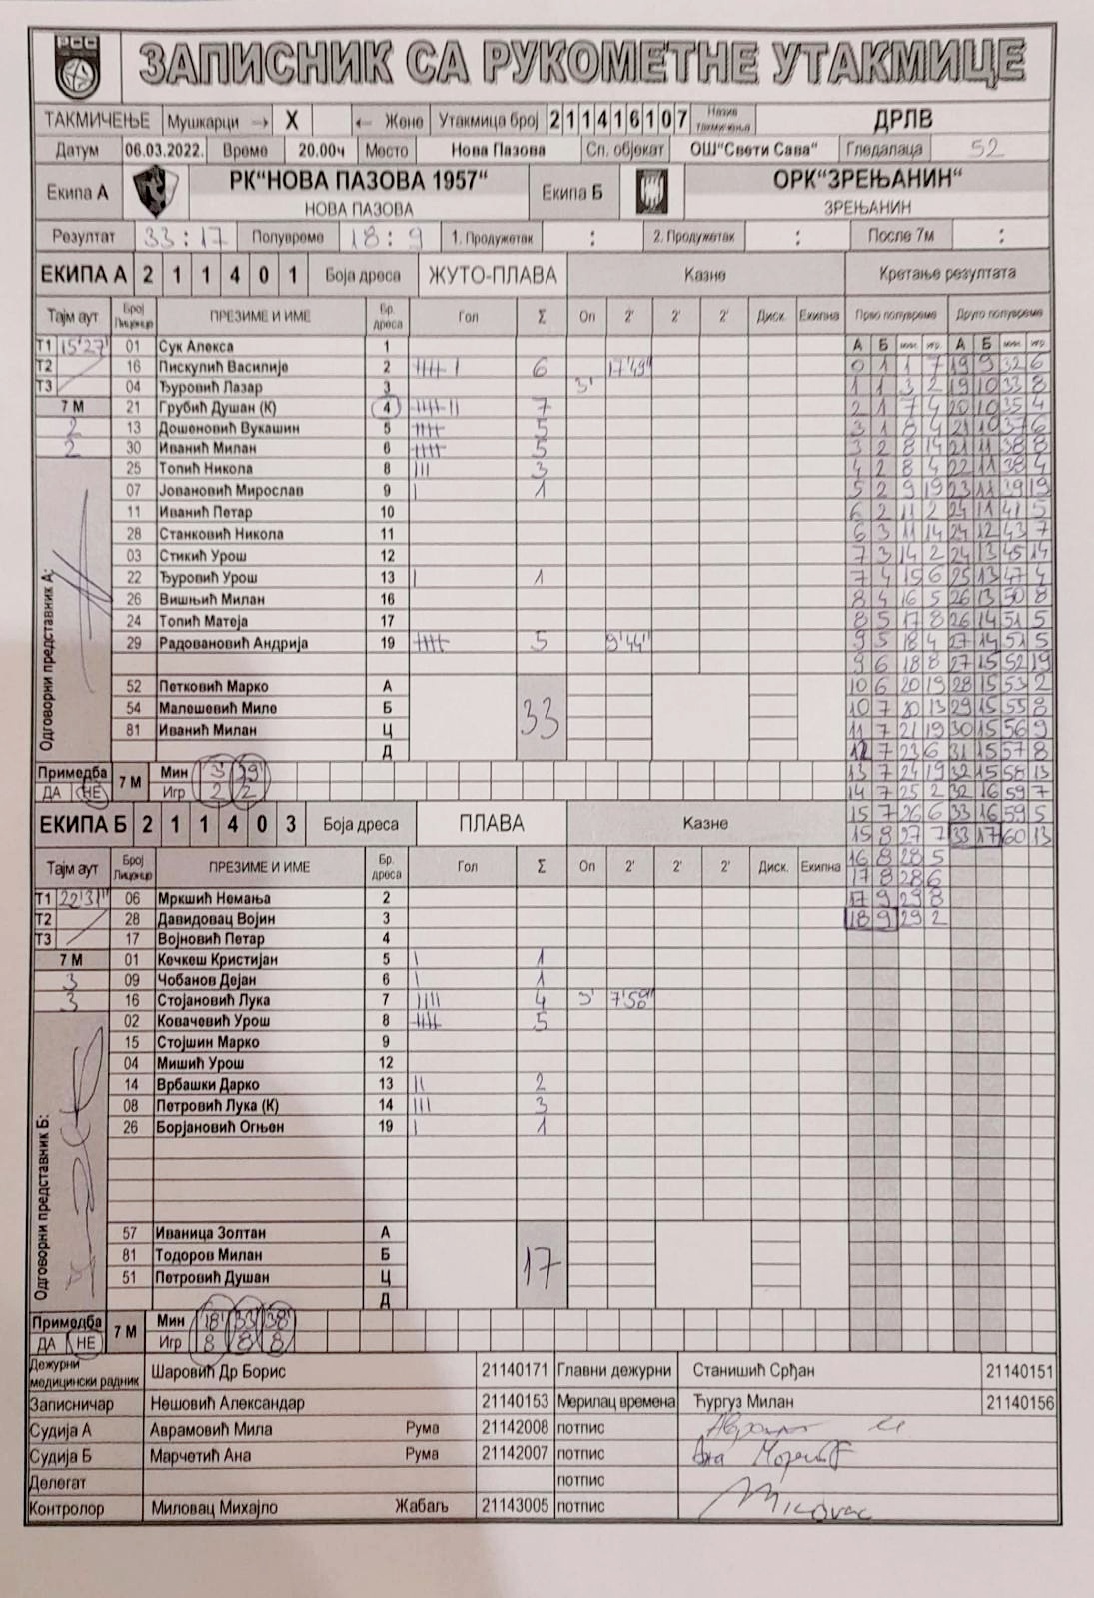 РСС
ЗАПИСНИК СА РУКОМЕТНЕ УТАКМИЦЕ
ТАКМИЧЕЊЕ Мушкарци → X ← Жене Утакмица број 2 1 1 4 1 6 1 0 7 Назив такмичења ДРЛВ
Датум 06.03.2022. Време 20.00ч Место Нова Пазова Сп. објекат ОШ"Свети Сава" Гледалаца 52
Екипа А РК"НОВА ПАЗОВА 1957" Екипа Б ОРК"ЗРЕЊАНИН"
НОВА ПАЗОВА ЗРЕЊАНИН
Резултат 33 : 17 Полувреме 18 : 9 1. Продужетак : 2. Продужетак : После 7м :
ЕКИПА А 2 1 1 4 0 1 Боја дреса ЖУТО-ПЛАВА Казне Кретање резултата
Тајм аут Број Лиценце ПРЕЗИМЕ И ИМЕ Бр. дреса Гол Σ Оп 2' 2' 2' Диск. Екипна Прво полувреме Друго полувреме
Т1 15'27" 01 Сук Алекса 1 А Б мин. игр. А Б мин. игр.
Т2 16 Пискулић Василије 2 6 17'49" 0 1 1 7 19 9 32 6
Т3 04 Ђуровић Лазар 3 3' 1 1 3 2 19 10 33 8
7 М 21 Грубић Душан (К) 4 7 2 1 7 4 20 10 35 4
2 13 Дошеновић Вукашин 5 5 3 1 8 4 21 10 37 6
2 30 Иванић Милан 6 5 3 2 8 14 21 11 38 8
25 Топић Никола 8 3 4 2 8 4 22 11 38 4
07 Јовановић Мирослав 9 1 5 2 9 19 23 11 39 19
11 Иванић Петар 10 6 2 11 2 24 11 41 5
28 Станковић Никола 11 6 3 11 14 24 12 43 7
03 Стикић Урош 12 7 3 14 2 24 13 45 14
22 Ђуровић Урош 13 1 7 4 15 6 25 13 47 4
26 Вишњић Милан 16 8 4 16 5 26 13 50 8
24 Топић Матеја 17 8 5 17 8 26 14 51 5
29 Радовановић Андрија 19 5 9'44" 9 5 18 4 27 14 51 5
9 6 18 8 27 15 52 19
52 Петковић Марко А 10 6 20 19 28 15 53 2
54 Малешевић Миле Б 33 10 7 20 13 29 15 55 8
81 Иванић Милан Ц 11 7 21 19 30 15 56 9
Д 12 7 23 6 31 15 57 8
Одговорни представник А:
Примедба 7 М Мин 3' 39' 13 7 24 19 32 15 58 13
ДА НЕ Игр 2 2 14 7 25 2 32 16 59 7
ЕКИПА Б 2 1 1 4 0 3 Боја дреса ПЛАВА Казне 15 7 26 6 33 16 59 5
15 8 27 7 33 17 60 13
Тајм аут Број Лиценце ПРЕЗИМЕ И ИМЕ Бр. дреса Гол Σ Оп 2' 2' 2' Диск. Екипна 16 8 28 5
17 8 28 6
Т1 22'31" 06 Мркшић Немања 2 17 9 29 8
Т2 28 Давидовац Војин 3 18 9 29 2
Т3 17 Војновић Петар 4
7 М 01 Кечкеш Кристијан 5 1
3 09 Чобанов Дејан 6 1
3 16 Стојановић Лука 7 4 3' 7'58"
02 Ковачевић Урош 8 5
15 Стојшин Марко 9
04 Мишић Урош 12
14 Врбашки Дарко 13 2
08 Петровић Лука (К) 14 3
26 Борјановић Огњен 19 1
57 Иваница Золтан А
81 Тодоров Милан Б 17
51 Петровић Душан Ц
Д
Одговорни представник Б:
Примедба 7 М Мин 18' 33' 38'
ДА НЕ Игр 8 8 8
Дежурни медицински радник Шаровић Др Борис 21140171 Главни дежурни Станишић Срђан 21140151
Записничар Нешовић Александар 21140153 Мерилац времена Ђургуз Милан 21140156
Судија А Аврамовић Мила Рума 21142008 потпис
Судија Б Марчетић Ана Рума 21142007 потпис
Делегат потпис
Контролор Миловац Михајло Жабаљ 21143005 потпис